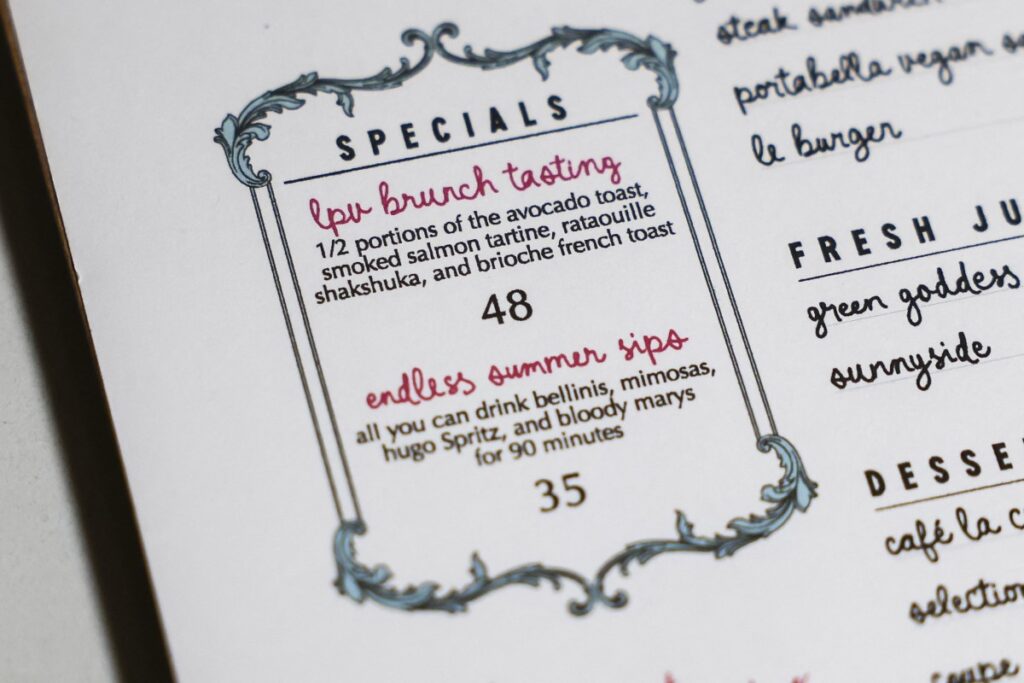 SPECIALS
lpv brunch tasting
1/2 portions of the avocado toast,
smoked salmon tartine, rataouille
shakshuka, and brioche french toast
48
endless summer sips
all you can drink bellinis, mimosas,
hugo Spritz, and bloody marys
for 90 minutes
35
steak
portabella vegan
le burger
FRESH
green goddess
sunnyside
café la
selection
coupe